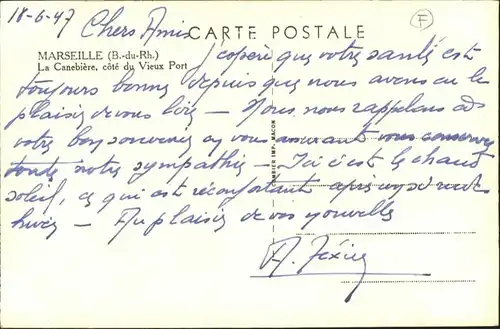 18-6-47 Chers Amis
CARTE POSTALE
F
MARSEILLE (B.-du-Rh.)
La Canebière, côté du Vieux Port
J'espère que votre santé est
toujours bonne depuis que nous avons eu le
plaisir de vous voir — Nous nous rappelons à
votre bon souvenir en vous assurant vous conserver
toute notre sympathie — Ici c'est le chaud
soleil, ce qui est réconfortant après un si rude
hiver — Au plaisir de vos nouvelles
COMBIER IMP. MACON